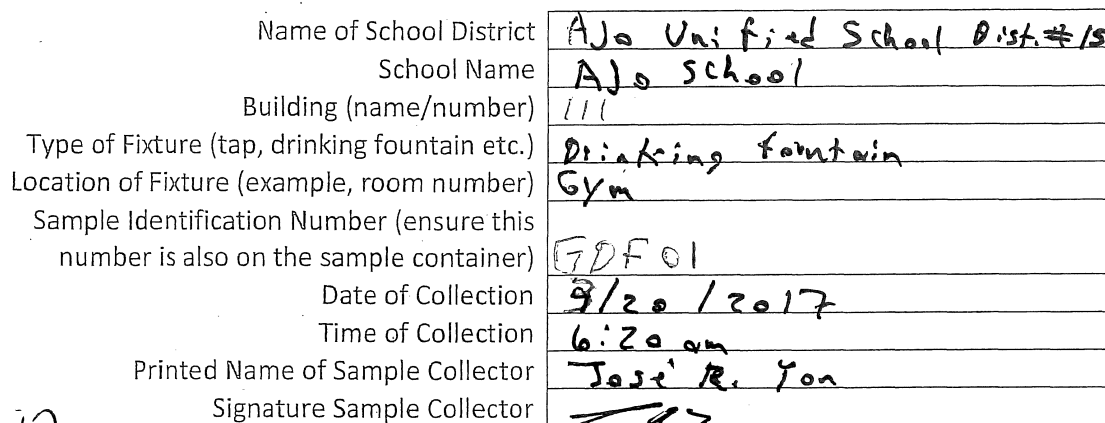 Name of School District AJo Unified School Dist. #15
School Name AJo School
Building (name/number) 111
Type of Fixture (tap, drinking fountain etc.) Drinking fountain
Location of Fixture (example, room number) Gym
Sample Identification Number (ensure this
number is also on the sample container) GDF01
Date of Collection 9/20/2017
Time of Collection 6:20 am
Printed Name of Sample Collector José R. Yon
Signature Sample Collector